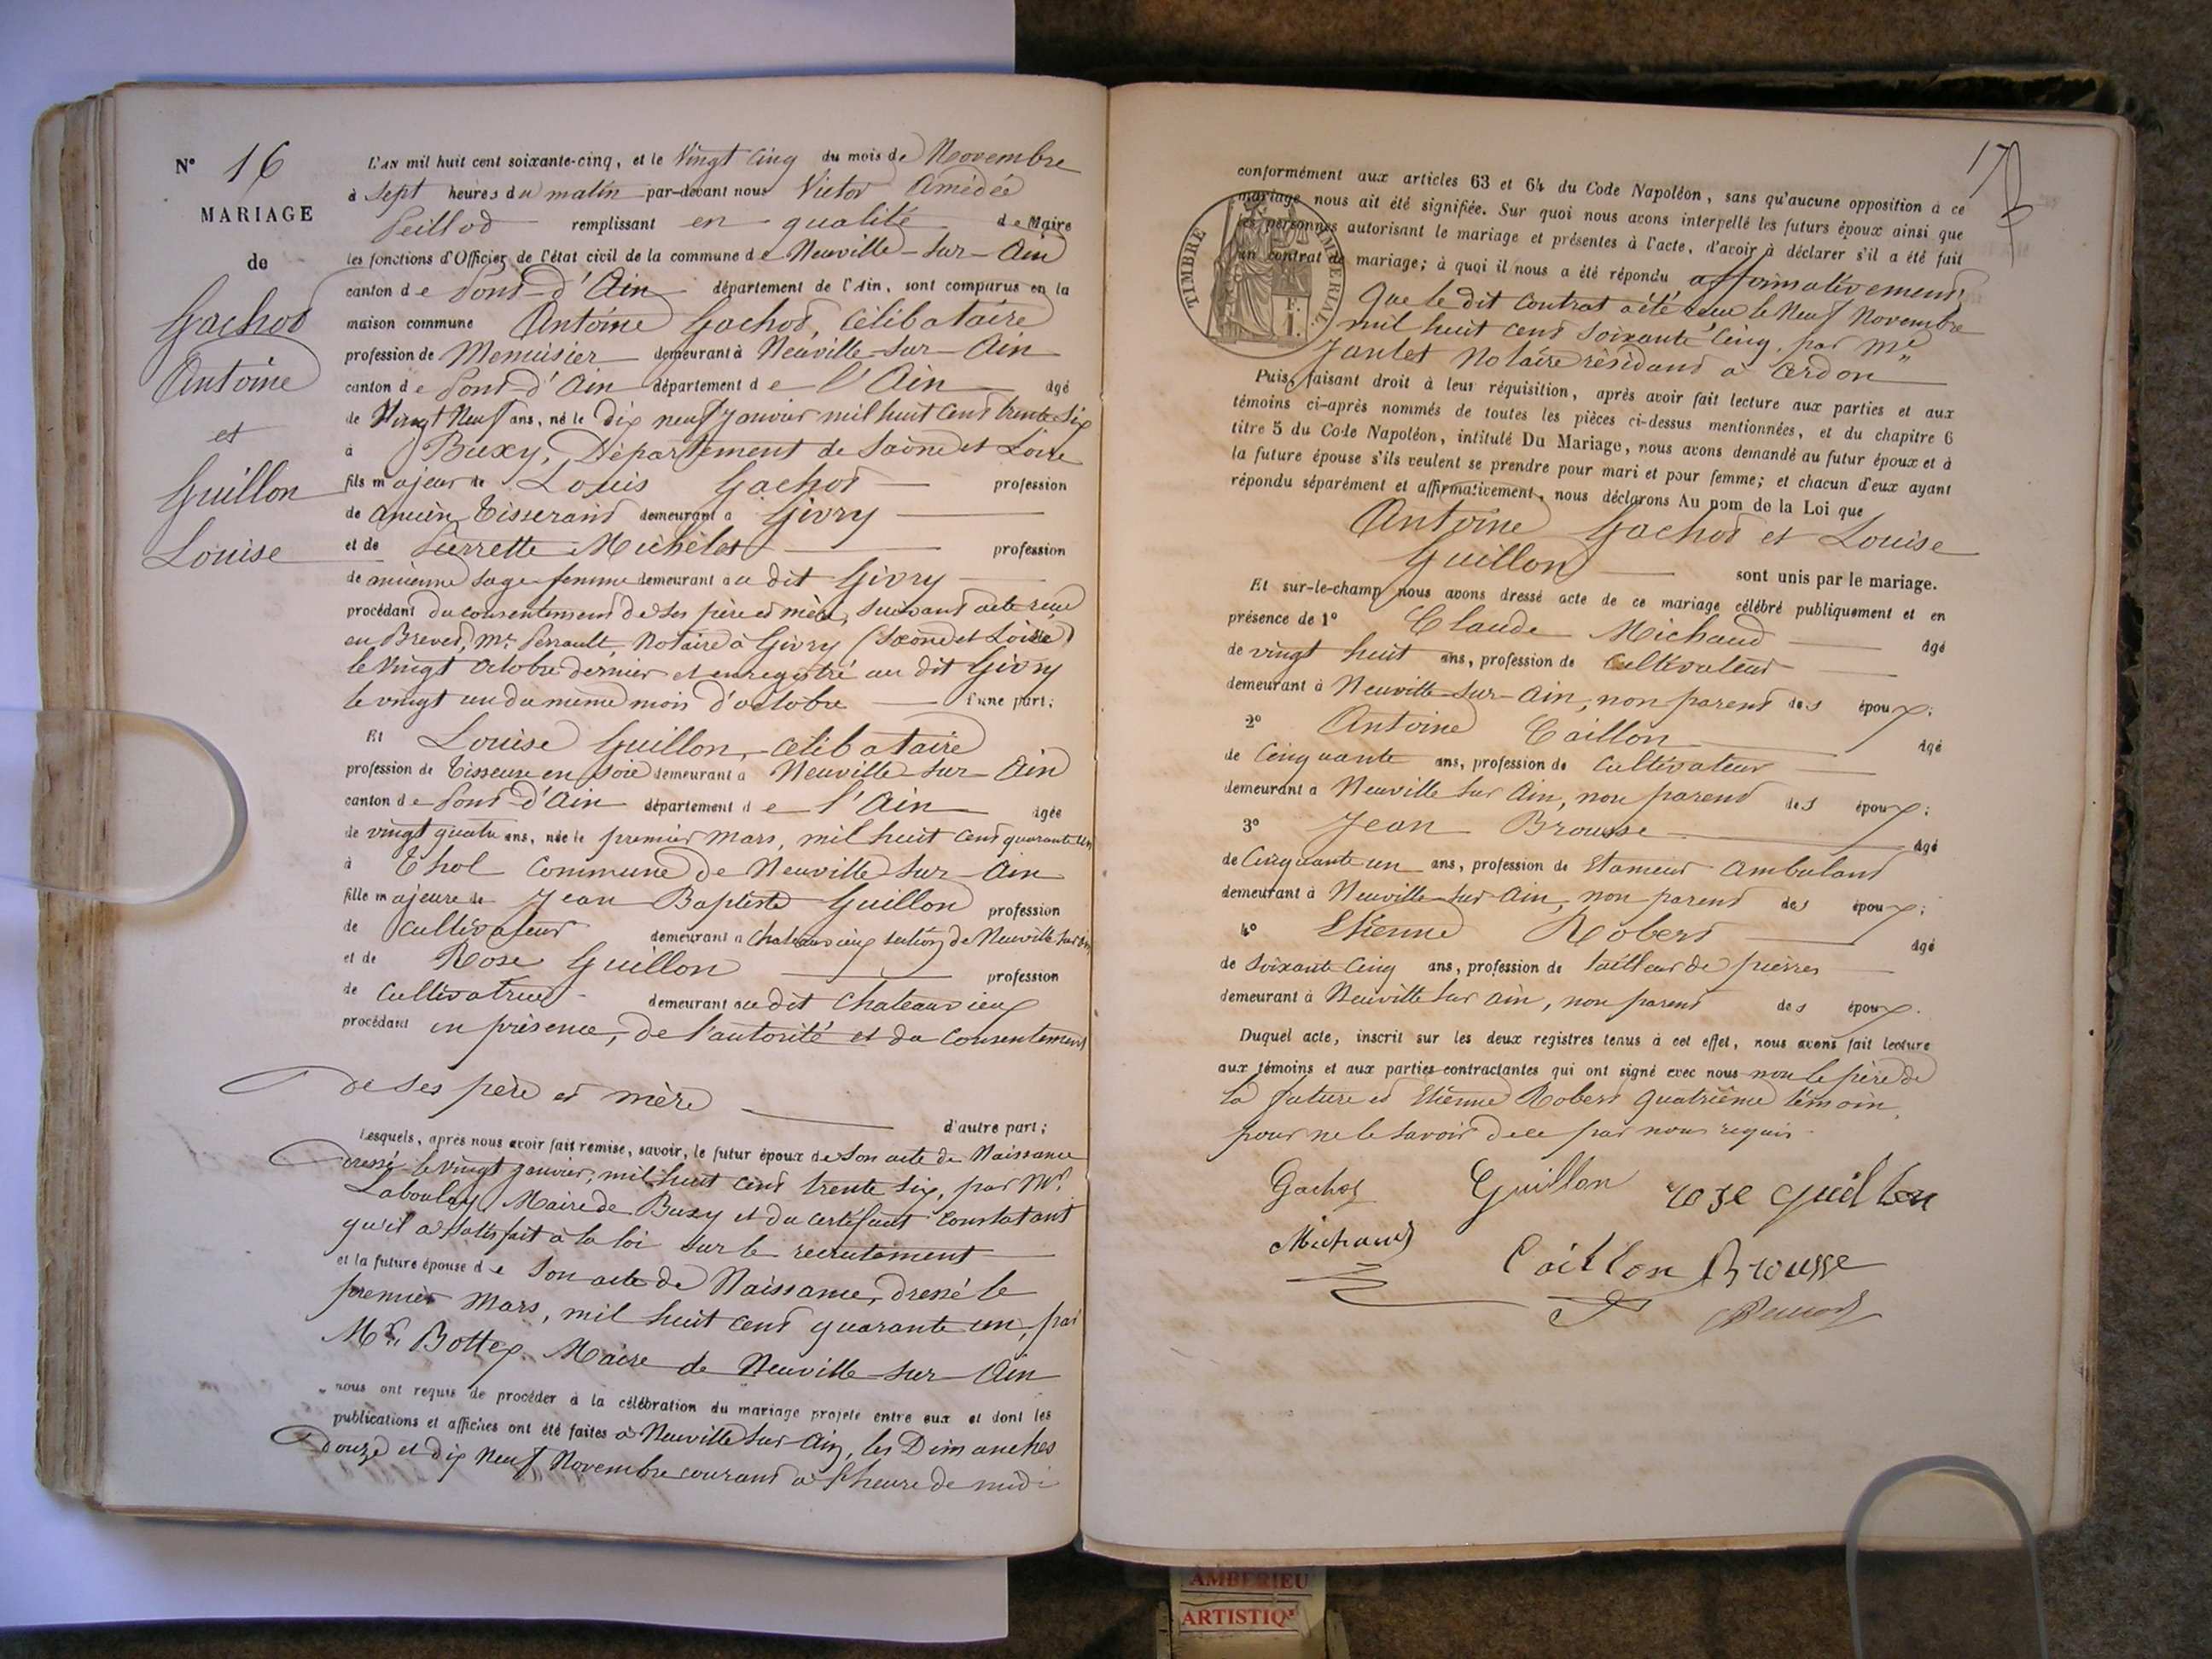 N° 16
MARIAGE
de
Gachot
Antoine
et
Guillon
Louise
L'AN mil huit cent soixante-cinq, et le Vingt Cinq du mois de Novembre
à Sept heures du matin par-devant nous Victor Amédée
remplissant en qualité de Maire
les fonctions d'Officier de l'état civil de la commune de Neuville-sur-Ain
canton de Pont-d'Ain département de l'Ain, sont comparus en la
maison commune Antoine Gachot, célibataire
profession de Menuisier demeurant à Neuville-sur-Ain
canton de Pont-d'Ain département de l'Ain âgé
de Vingt Neuf ans, né le dix neuf Janvier mil huit Cent trente Six
à Buxy, Département de Saône et Loire
fils majeur de Louis Gachot profession
de ancien Tisserand demeurant à Givry
et de Pierrette Michelot profession
de ancienne Sage-femme demeurant à au dit Givry
procédant du consentement de Ses père et mère, suivant acte reçu
en Brevet, Mr. Perrault, Notaire à Givry (Saône et Loire)
le Vingt Octobre dernier et enregistré au dit Givry
le vingt un du même mois d'octobre d'une part;
Et Louise Guillon, célibataire
profession de Tisseuse en soie demeurant à Neuville-sur-Ain
canton de Pont-d'Ain département de l'Ain âgée
de vingt quatre ans, née le premier Mars, mil huit Cent quarante un
à Thol Commune de Neuville-sur-Ain
fille majeure de Jean Baptiste Guillon profession
de Cultivateur demeurant à Chateauvieux section de Neuville sur Ain
et de Rose Guillon profession
de Cultivatrice demeurant au dit Chateauvieux
procédant en présence, de l'autorité et du Consentement
de Ses père et mère
d'autre part;
Lesquels, après nous avoir fait remise, savoir, le futur époux de Son acte de Naissance
dressé le vingt Janvier, mil huit cent trente Six, par Mr.
Laboulay Maire de Buxy et du certificat constatant
qu'il a Satisfait à la loi sur le recrutement
et la future épouse de Son acte de Naissance, dressé le
premier Mars, mil huit cent quarante un, par
Mr. Bottex Maire de Neuville-sur-Ain
nous ont requis de procéder à la célébration du mariage projeté entre eux et dont les
publications et affiches ont été faites à Neuville sur Ain, les Dimanches
douze et dix Neuf Novembre courant à l'heure de midi
conformément aux articles 63 et 64 du Code Napoléon, sans qu'aucune opposition à ce
mariage nous ait été signifiée. Sur quoi nous avons interpellé les futurs époux ainsi que
les personnes autorisant le mariage et présentes à l'acte, d'avoir à déclarer s'il a été fait
un contrat de mariage; à quoi il nous a été répondu affirmativement
TIMBRE IMPERIAL
F. 1.
Que le dit Contrat a été reçu le Neuf Novembre
mil huit cent Soixante Cinq, par Me
Notaire résidant à Cerdon
Puis, faisant droit à leur réquisition, après avoir fait lecture aux parties et aux
témoins ci-après nommés de toutes les pièces ci-dessus mentionnées, et du chapitre 6
titre 5 du Code Napoléon, intitulé Du Mariage, nous avons demandé au futur époux et à
la future épouse s'ils veulent se prendre pour mari et pour femme; et chacun d'eux ayant
répondu séparément et affirmativement, nous déclarons Au nom de la Loi que
Antoine Gachot et Louise
Guillon sont unis par le mariage.
Et sur-le-champ nous avons dressé acte de ce mariage célébré publiquement et en
présence de 1° Claude Michaud âgé
de vingt huit ans, profession de Cultivateur
demeurant à Neuville-sur-Ain, non parent des époux;
2° Antoine Caillon âgé
de Cinquante ans, profession de Cultivateur
demeurant à Neuville sur Ain, non parent des époux;
3° Jean Brousse âgé
de Cinquante un ans, profession de Etameur Ambulant
demeurant à Neuville-sur-Ain, non parent des époux;
4° Etienne Robert âgé
de Soixante Cinq ans, profession de tailleur de pierres
demeurant à Neuville sur Ain, non parent des époux.
Duquel acte, inscrit sur les deux registres tenus à cet effet, nous avons fait lecture
aux témoins et aux parties contractantes qui ont signé avec nous non le père de
la future et Etienne Robert quatrième témoin,
pour ne le Savoir de ce par nous requis
Gachot Guillon rose guillon
Michaud Caillon Brousse
AMBERIEU
ARTISTIQ